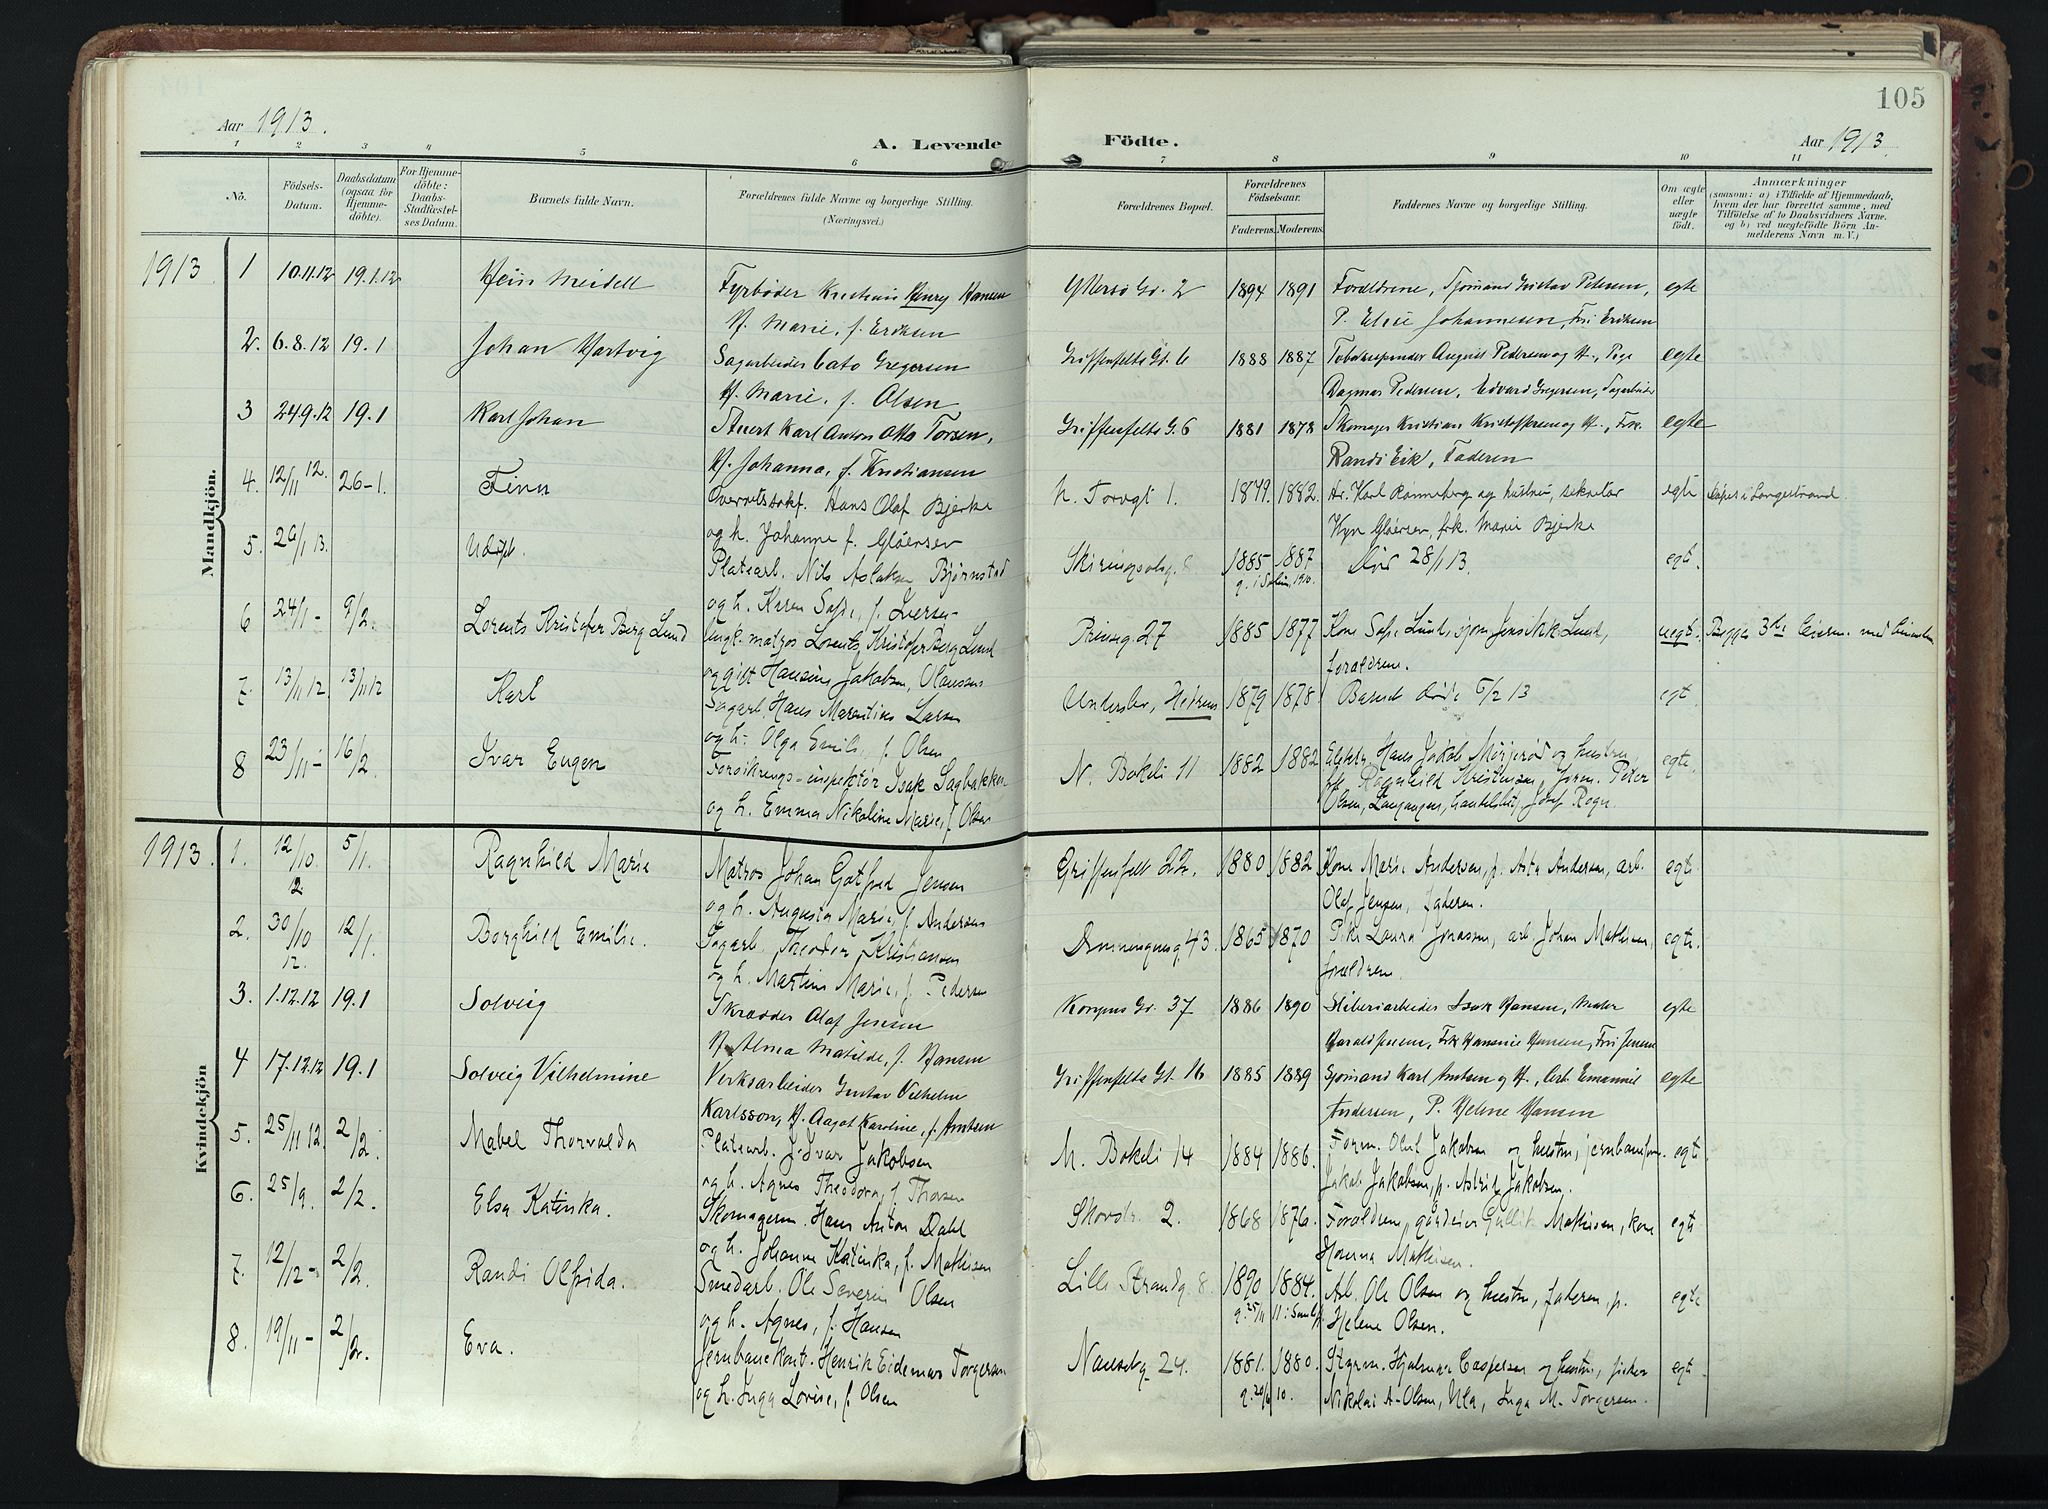 105
Aar 1913.
A. Levende Födte.
Aar 1913.
1 2 3 4 5 6 7 8 9 10 11
No.
Födsels-Datum.
Daabsdatum (ogsaa for Hjemmedöbte).
For Hjemmedöbte: Daabs-Stadfæstelses Datum.
Barnets fulde Navn.
Forældrenes fulde Navne og borgerlige Stilling. (Næringsvei.)
Forældrenes Bopæl.
Forældrenes Födselsaar.
Faderens. Moderens.
Faddernes Navne og borgerlige Stilling.
Om ægte eller uægte födt.
Anmærkninger
(saasom: a) i Tilfælde af Hjemmedaab, hvem der har forrettet samme, med Tilföielse af to Daabsvidners Navne. og b) ved uægtefödte Börn Anmelderens Navn m. V.)
Mandkjön.
1913 1 10.11.12 19.1.12 Meidell Fyrbøder Kristian Henry Hansen 1894 1891 Forældrene, Sjømand Gustav Petersen, egte
H. Marie, f. Eriksen P. Johannesen, Eriksen
2. 6.8.12 19.1 Johan Hartvig Sagarbeider Cato Gregersen Griffenfelts Gt. 6 1888 1887 August Pedersen og H., Pige egte
H. Marie, f. Olsen Dagmar Pedersen, Edvard Gregersen, Sagarbeider
3 24.9.12 19.1 Karl Johan Karl Anton Otto Torsen, Griffenfelts G. 6 1881 1878 Skomager Kristian Kristoffersen og H., Frk. egte
H. Johanna, f. Kristiansen Randi Eik, Faderen
4. 12/11 12. 26-1. Finn Hans Olaf Bjerke N. Torvgt 1. 1879. 1882. Hr. Karl Rønneberg og hustru, sekretær egte
og h. Johanne f. Gløersen Gløersen, frk. Marie Bjerke
5. 29/1 13. Udøpt. Platearb. Nils Aslaksen Bjørnstad 1885 1887 Død 28/1 13. egt.
og h. Karen Sofie, f. Iversen
6 24/1- 9/2. Lorents Kristofer Berg Lund Ungk. matros Lorents Kristofer Berg Lund Prinseg. 27 1885 1877 Kone Sofie Lund, Lund, uegt. Begge 3die
og gift Hansine Jakobsen, forældrene.
7. 13/11 12 13/11 12 Karl Sagarb. Hans Marentius Larsen Undersbo, Hedrum 1879 1878 Barnet døde 5/2 13 egt.
og h. Olga Emilie, f. Olsen
8 23/11- 16/2. Ivar Eugen Forsikrings-inspektør Isak Sagbakken N. Bøkeli 11 1882 1882 Hans Jakob og hustru egte.
og h. Emma Nikoline Marie, f. Olsen Ragnhild Kristensen, Peter
Olsen, Langangen,
Kvindekjön
1913. 1. 12/10 12 5/1. Ragnhild Marie Matros Johan Gotfred Jensen Griffenfelt 22. 1880 1882 Kone Marie Andersen, p. Asta Andersen, arb. egte.
og h. Augusta Marie, f. Andersen Olaf Jensen, faderen.
2. 30/10 12. 12/1. Borghild Emilie. Sagarb. Theodor Kristiansen Dronningensg. 43. 1865 1870 Pike Laura Jonassen, arb. Johan Mathisen, egte.
og h. Martine Marie, f. Pedersen forældrene.
3. 1.12.12 19.1 Solveig Skrædder Olaf Jensen Kongens Gt. 37 1886 1890 Sliberiarbeider Isak Hansen, Maler egte
H. Alma Matilde, f. Hansen Harald Jensen, Frk Hansen, Jensen
4 17.12.12 19.1 Solveig Vilhelmine Verksarbeider Gustav Vilhelm Griffenfelts Gt. 16 1885 1889 Sjømand Karl Arntsen og H., Arb. Emanuel egte
Karlsson, H. Aagot Karoline, f. Arntsen Andersen, P. Helene Hansen
5. 25/11 12. 2/2. Mabel Thorvalda Platearb. J. Ivar Jakobsen M. Bøkeli 14 1884 1886. Form. Oluf Jakobsen og hustru, egte
og h. Agnes Theodora, f. Thorsen Jakob Jakobsen, p. Astrid Jakobsen.
6. 25/9. 2/2. Elsa Katinka. Skomagerm. Hans Anton Dahl Skovstr. 2. 1868 1876. Forældrene, Gullik Mathisen, kone egte
og h. Johanne Katinka, f. Mathisen Hanna Mathisen.
7. 12/12- 2/2. Randi Olfrida. Smedarb. Ole Severin Olsen Lille Strandg. 8. 1890 1884. Arb. Ole Olsen og hustru, faderen, p. egte
og h. Agnes, f. Hansen Helene Olsen.
8. 19/11- 2/2. Eva. Jernbanekont. Henrik Eidemar Torgersen Nansetg. 24. 1881. 1880. Styrm. Hjalmar Caspersen og hustru, fisker egte
og h. Inga Lovise, f. Olsen g. 20/6 10. Nikolai A. Olsen, Ula, Inga M. Torgersen.